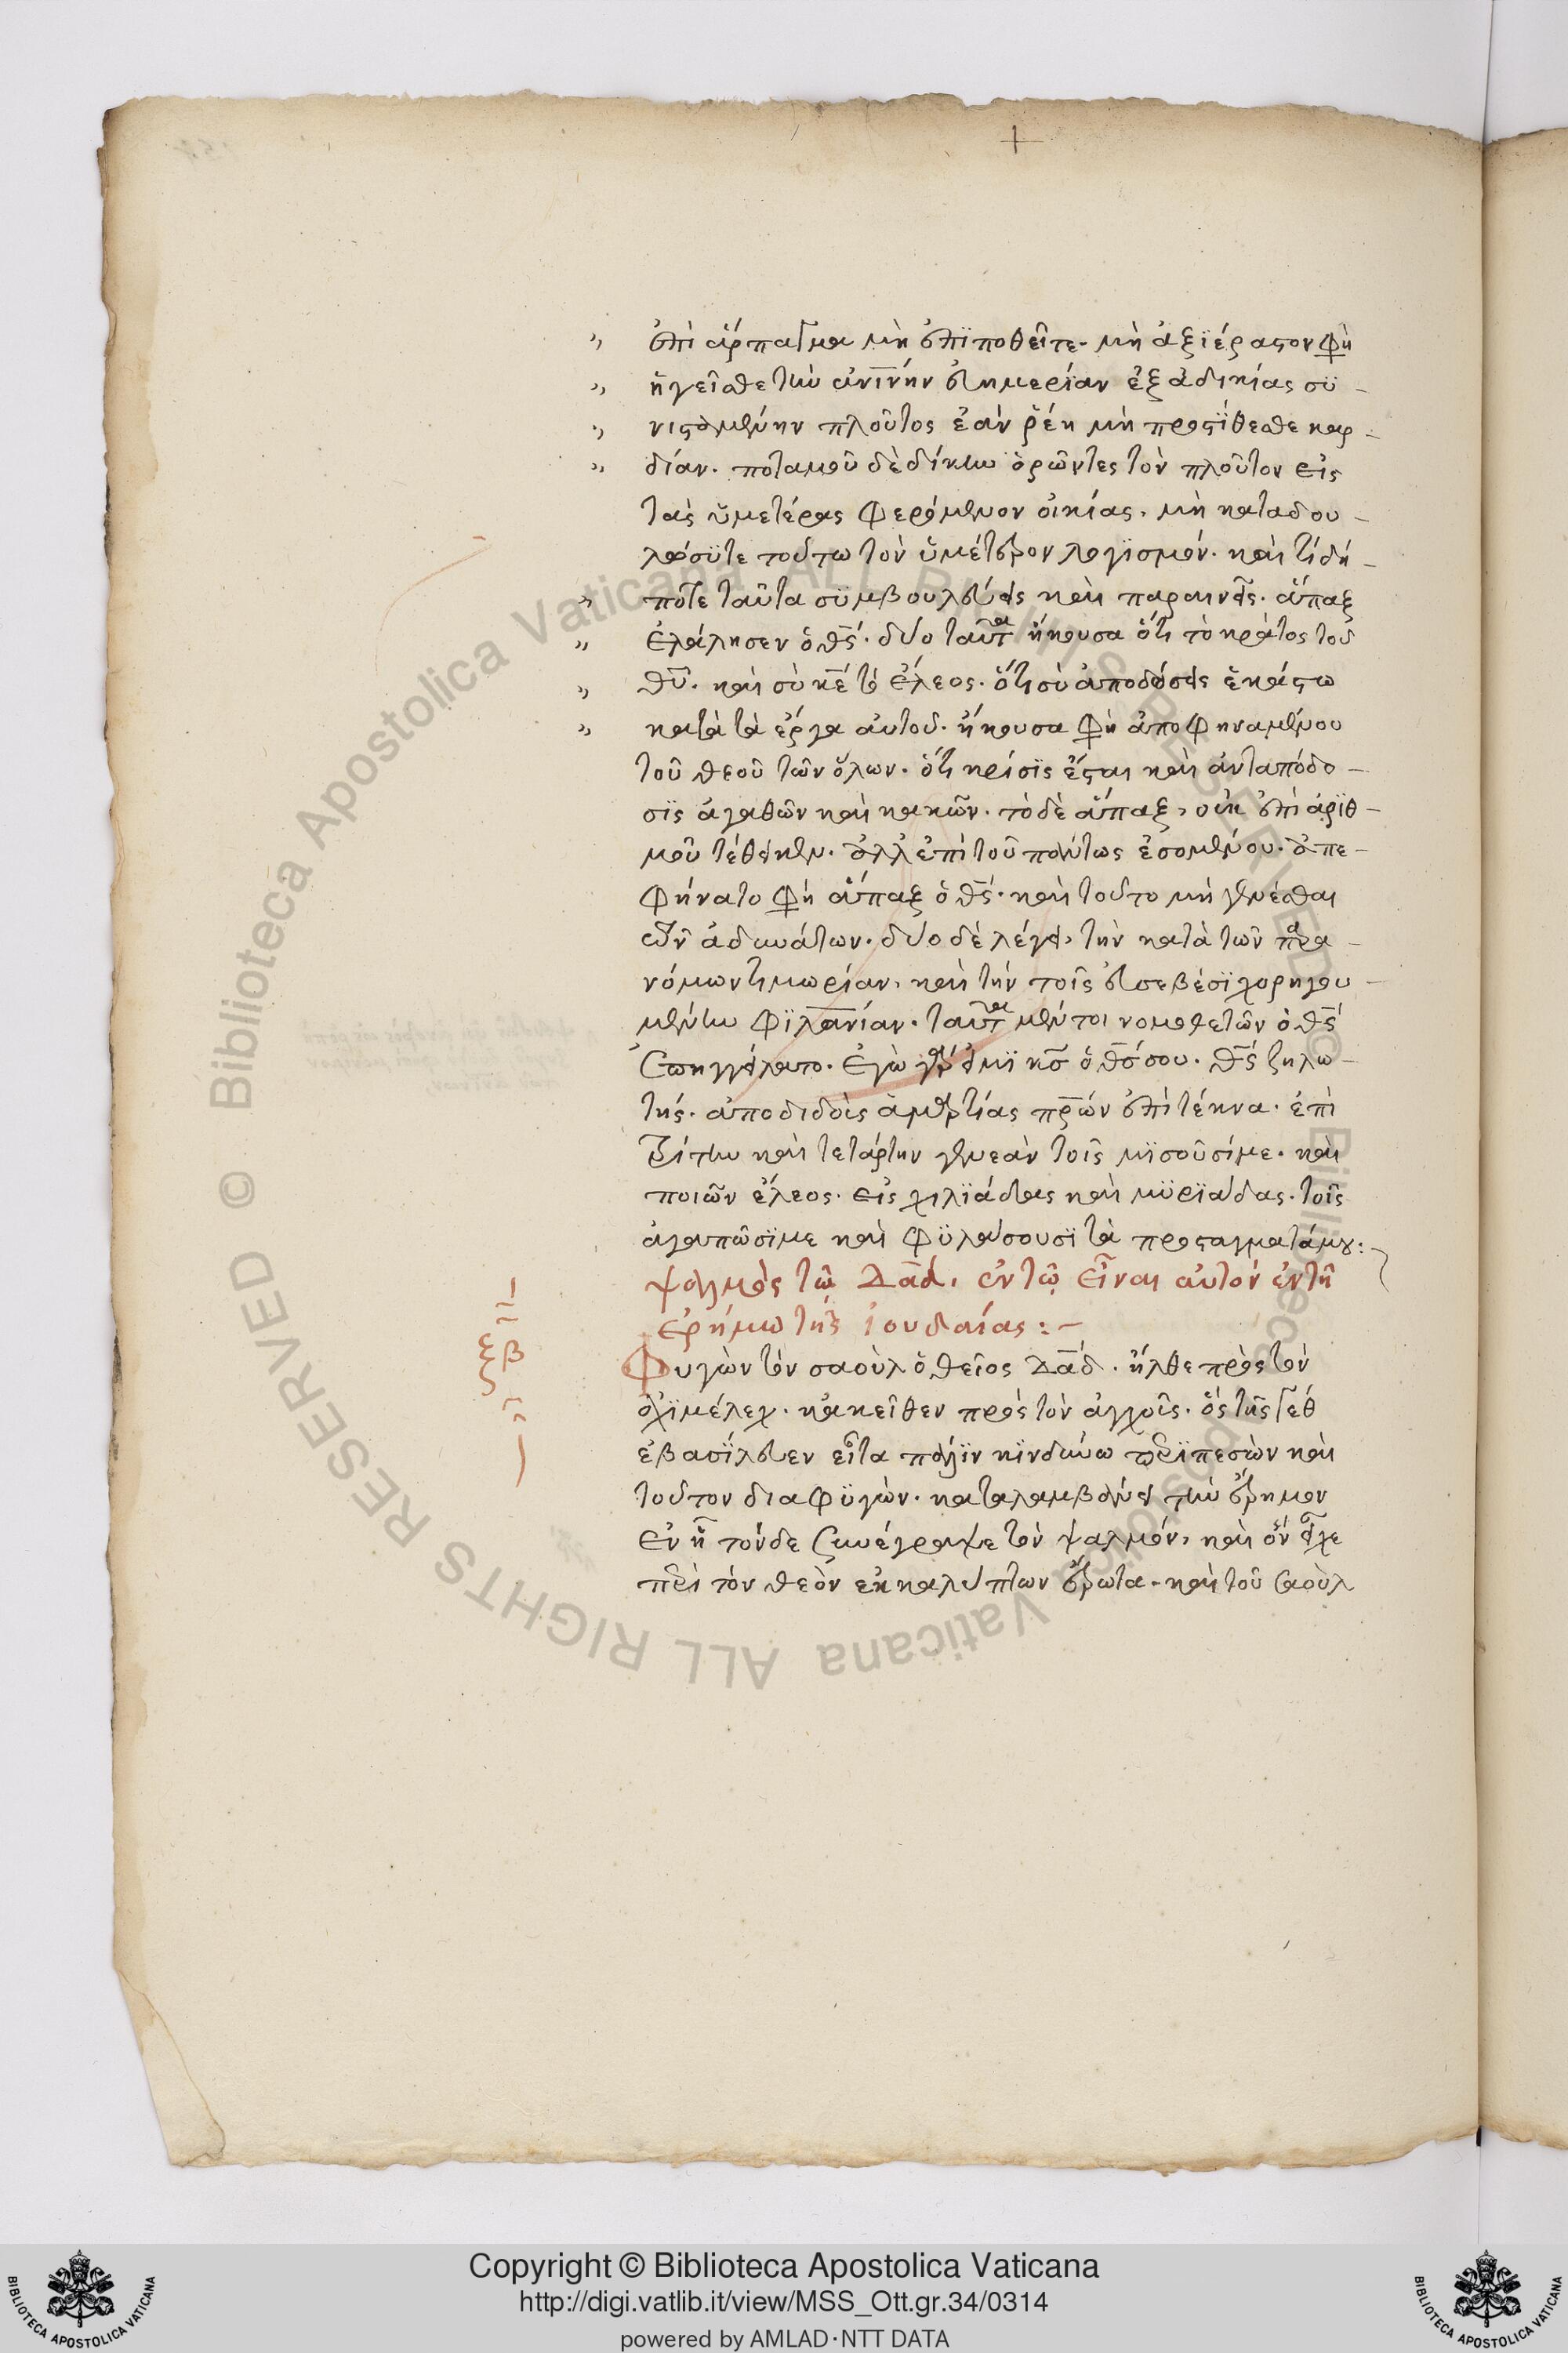 ἐπὶ ἅρπαγμα μὴ ἐπιποθεῖτε. μὴ ἀξιέραστον φη
ἡγεῖσθε τὴν ἀνινην εὐημερίαν ἐξ ἀδικίας συ-
νισταμένην πλοῦτος ἐὰν ρέη μὴ προστίθεσθε καρ-
δίαν. ποταμοῦ δὲ δίκην ὁρῶντες τὸν πλοῦτον εἰς
τὰς ὑμετέρας φερόμενον οἰκίας, μὴ καταδου-
λώσητε τούτω τὸν ὑμέτερον λογισμόν. καὶ τί δή-
ποτε ταῦτα συμβουλεύεις καὶ παραινεῖς. ἅπαξ
ἐλάλησεν ὁ θς. δύο ταῦτα ἤκουσα ὅτι τὸ κράτος τοῦ
θυ. καὶ σὺ κε τὸ ἔλεος. ὅτι σὺ ἀποδώσεις ἑκάστω
κατὰ τὰ ἔργα αὐτοῦ. ἤκουσα φη ἀποφηναμένου
τοῦ θεοῦ τῶν ὅλων. ὅτι κρίσις ἔσται καὶ ἀνταπόδο-
σις ἀγαθῶν καὶ κακῶν. τὸ δὲ ἅπαξ, οὐκ ἐπὶ ἀριθ-
μοῦ τέθεικεν. ἀλλ' ἐπὶ τοῦ πάντως ἐσομένου. ἀπε-
φήνατο φη ἅπαξ ὁ θς. καὶ τοῦτο μὴ γενέσθαι
τῶν ἀδυνάτων. δύο δὲ λέγει, τὴν κατὰ τῶν παρα-
νόμων τιμωρίαν, καὶ τὴν τοῖς εὐσεβέσι χορηγου-
μένην φιλανίαν. ταῦτα μέντοι νομοθετῶν ὁ θς
ἐπηγγείλατο. ἐγὼ γάρ εἰμι κς ὁ θς σου. θς ζηλω-
τής. ἀποδιδοὺς ἁμαρτίας πρων ἐπὶ τέκνα. ἐπὶ
τρίτην καὶ τετάρτην γενεὰν τοῖς μισοῦσί με. καὶ
ποιῶν ἔλεος. εἰς χιλιάδας καὶ μυριάδας. τοῖς
ἀγαπῶσί με καὶ φυλάσουσι τὰ προσταγματά μου:
ψαλμὸς τῶ Δαδ. ἐν τῶ εἶναι αὐτὸν ἐν τῆ
ἐρήμω τῆς ἰουδαίας:-
ξβ
Φυγὼν τὸν σαοὺλ ὁ θεῖος Δαδ. ἦλθε πρὸς τὸν
ἀχιμέλεχ. κἀκεῖθεν πρὸς τὸν ἀγχοῖς. ὃς τῆς Γὲθ
ἐβασίλευεν εἶτα πάλιν κινδύνω περιπεσὼν καὶ
τοῦτον διαφυγὼν. καταλαμβάνει τὴν ἔρημον
ἐν ἧ τόνδε συνέγραψε τὸν ψαλμόν, καὶ ὃν εἶχε
περὶ τὸν θεὸν ἐκκαλύπτων ἔρωτα. καὶ τοῦ σαοὺλ
Copyright © Biblioteca Apostolica Vaticana
http://digi.vatlib.it/view/MSS_Ott.gr.34/0314
powered by AMLAD·NTT DATA